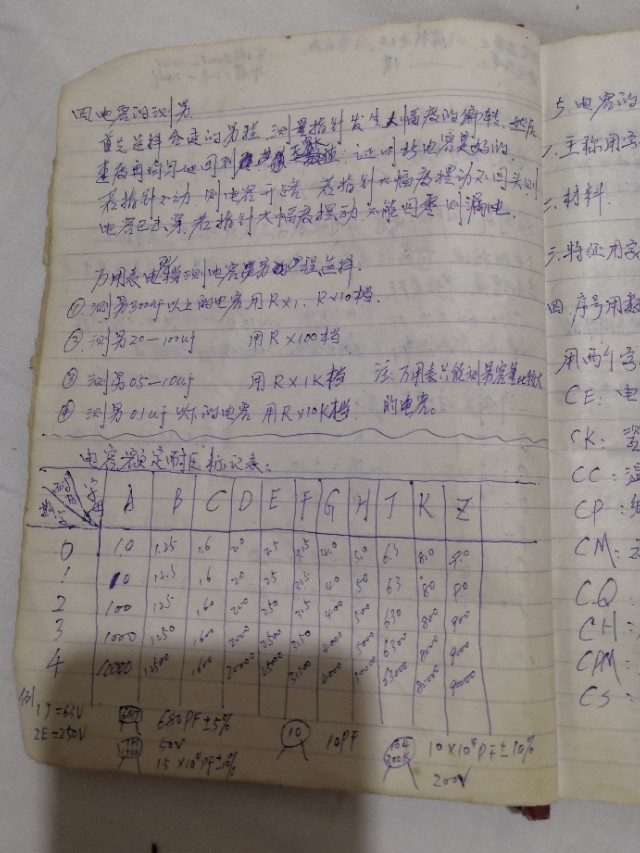 四电容的测量
首先选择合适的量程，测量指针发生大幅度的偏转，然后
证明此电容是好的。
若指针不动则电容开路 若指针大幅度摆动不回头则
电容已击穿若指针大幅度摆动不能回零则漏电.
万用表电 测电容 量程选择.
① 测量300uf以上的电容用R×1、R×10档.
② 测量20—100uf 用R×100档
③ 测量0.5—10uf 用R×1K档 注:万用表只能测量容量比较大
④ 测量0.1uf以下的电容 用R×10K档 的电容。
电容额定耐压标记表:
数字 字母 A B C D E F G H J K Z
0 1.0 1.25 1.6 2.0 2.5 3.15 4.0 5.0 6.3 8.0 9.0
1 10 12.5 16 20 25 31.5 40 50 63 80 90
2 100 125 160 200 250 315 400 500 630 800 900
3 1000 1250 1600 2000 2500 3150 4000 5000 6300 8000 9000
4 10000 12500 1600 20000 25000 31500 40000 50000 63000 80000 90000
例 1J=63V
2E=250V
681J 680PF±5%
50V
15×10⁴PF±10%
10 10PF
104 10×10⁴PF±10%
200V
5 电容的
一.主称用字
二.材料
三.特征用字
四.序号用数
用两个字
CE:电
CK:瓷
CC:
CP:纸
CM:
CQ:
CH:
CPM:
CS: